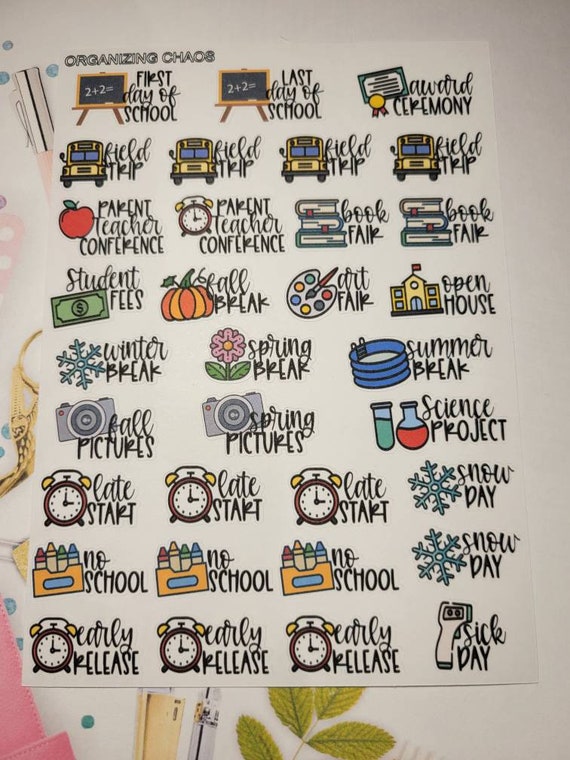 ORGANIZING CHAOS
2+2=
FIRST
day of
SCHOOL
2+2=
LAST
day of
SCHOOL
award
CEREMONY
field
TRIP
field
TRIP
field
TRIP
field
TRIP
PARENT
teacher
CONFERENCE
PARENT
teacher
CONFERENCE
book
FAIR
book
FAIR
Student
FEES
$
fall
BREAK
art
FAIR
open
HOUSE
winter
BREAK
spring
BREAK
summer
BREAK
fall
PICTURES
spring
PICTURES
Science
PROJECT
late
START
late
START
late
START
snow
DAY
no
SCHOOL
no
SCHOOL
no
SCHOOL
snow
DAY
early
RELEASE
early
RELEASE
early
RELEASE
sick
DAY